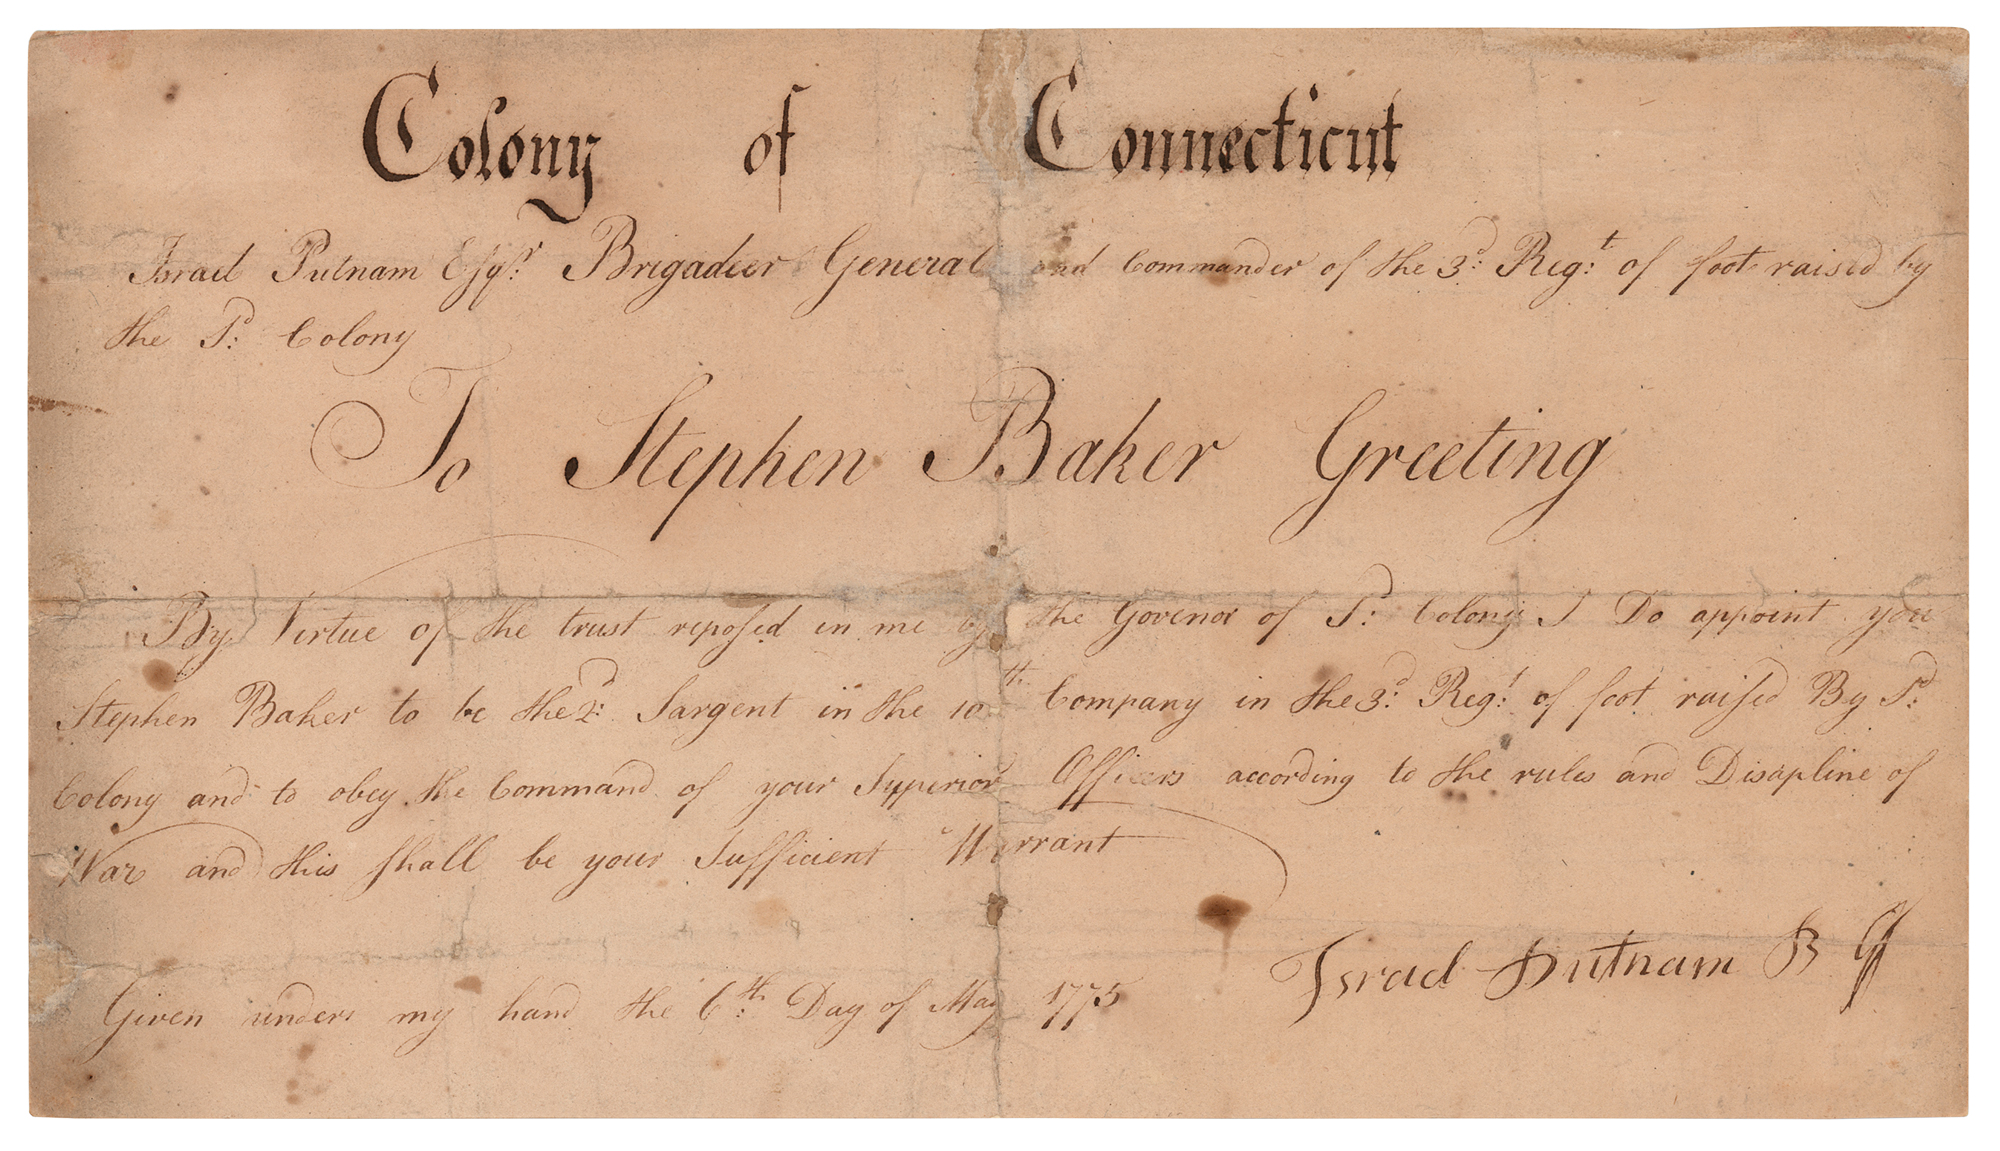 Colony of Connecticut
Israel Putnam Esqr. Brigadier General and Commander of the 3d. Regt. of foot raised by
the Sd. Colony
To Stephen Baker Greeting
By Virtue of the trust reposed in me by the Govenor of Sd. Colony I Do appoint you
Stephen Baker to be the 2d. Sargent in the 10th. Company in the 3d. Regt. of foot raised By Sd.
Colony and to obey the Command of your Supperior Officers according to the rules and Disapline of
War and this shall be your Sufficient Warrant
Israel Putnam B G
Given under my hand the 6th. Day of May 1775